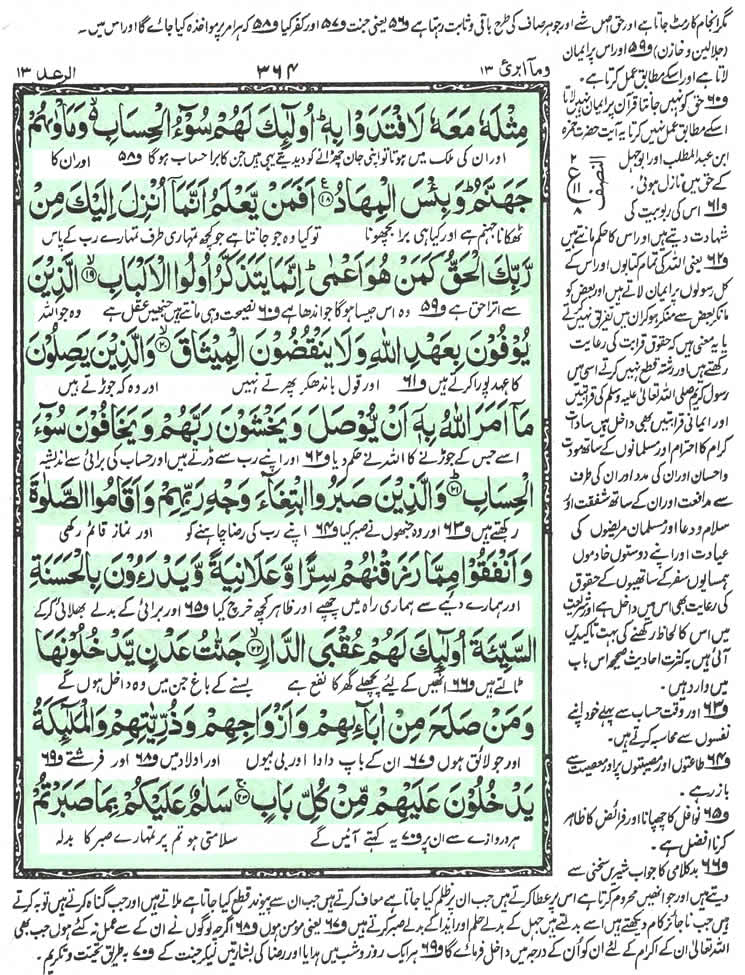 مگر انجام کار مٹ جاتا ہے اور حق اصل شے اور جوہر صاف کی طرح باقی و ثابت رہتا ہے و۵۶ یعنی جنت و۵۷ اور کفر کیا و۵۸ کہ ہر امر پر مواخذہ کیا جائے گا اور اس میں سے
وما ابرئ ۱۳
۳۶۴
الرعد ۱۳
مِثْلَهٗ مَعَهٗ لَافْتَدَوْا بِهٖ ؕ اُولٰٓئِكَ لَهُمْ سُوْٓءُ الْحِسَابِ ۙ وَمَاْوٰىهُمْ
اور ان کی ملک میں ہوتا تو اپنی جان چھڑانے کو دیدیتے یہی ہیں جن کا برا حساب ہوگا و۵۸ اور ان کا
جَهَنَّمُ ؕ وَبِئْسَ الْمِهَادُ ۠ ۱۸ اَفَمَنْ يَّعْلَمُ اَنَّمَاۤ اُنْزِلَ اِلَيْكَ مِنْ
ٹھکانا جہنم ہے اور کیا ہی برا بچھونا تو کیا وہ جو جانتا ہے جو کچھ تمہاری طرف تمہارے رب کے پاس
رَّبِّكَ الْحَقُّ كَمَنْ هُوَ اَعْمٰى ؕ اِنَّمَا يَتَذَكَّرُ اُولُوا الْاَلْبَابِ ۙ ۱۹ الَّذِيْنَ
سے اترا حق ہے و۵۹ وہ اس جیسا ہوگا جو اندھا ہے و۶۰ نصیحت وہی مانتے ہیں جنہیں عقل ہے وہ جو اللہ
يُوْفُوْنَ بِعَهْدِ اللّٰهِ وَلَا يَنْقُضُوْنَ الْمِيْثَاقَ ۙ ۲۰ وَالَّذِيْنَ يَصِلُوْنَ
کا عہد پورا کرتے ہیں و۶۱ اور قول باندھ کر پھرتے نہیں اور وہ کہ جوڑتے ہیں
مَاۤ اَمَرَ اللّٰهُ بِهٖۤ اَنْ يُّوْصَلَ وَيَخْشَوْنَ رَبَّهُمْ وَيَخَافُوْنَ سُوْٓءَ
اسے جس کے جوڑنے کا اللہ نے حکم دیا و۶۲ اور اپنے رب سے ڈرتے ہیں اور حساب کی برائی سے اندیشہ
الْحِسَابِ ؕ ۲۱ وَالَّذِيْنَ صَبَرُوا ابْتِغَآءَ وَجْهِ رَبِّهِمْ وَاَقَامُوا الصَّلٰوةَ
رکھتے ہیں و۶۳ اور وہ جنہوں نے صبر کیا و۶۴ اپنے رب کی رضا چاہنے کو اور نماز قائم رکھی
وَاَنْفَقُوْا مِمَّا رَزَقْنٰهُمْ سِرًّا وَّعَلَانِيَةً وَّيَدْرَءُوْنَ بِالْحَسَنَةِ
اور ہمارے دیئے سے ہماری راہ میں چھپے اور ظاہر کچھ خرچ کیا و۶۵ اور برائی کے بدلے بھلائی کر کے
السَّيِّئَةَ اُولٰٓئِكَ لَهُمْ عُقْبَى الدَّارِ ۙ ۲۲ جَنّٰتُ عَدْنٍ يَّدْخُلُوْنَهَا
ٹالتے ہیں و۶۶ انہیں کے لئے پچھلے گھر کا نفع ہے بسنے کے باغ جن میں وہ داخل ہوں گے
وَمَنْ صَلَحَ مِنْ اٰبَآئِهِمْ وَاَزْوَاجِهِمْ وَذُرِّيّٰتِهِمْ وَالْمَلٰٓئِكَةُ
اور جو لائق ہوں و۶۷ ان کے باپ دادا اور بی بیوں اور اولاد میں و۶۸ اور فرشتے و۶۹
يَدْخُلُوْنَ عَلَيْهِمْ مِّنْ كُلِّ بَابٍ ۚ ۲۳ سَلٰمٌ عَلَيْكُمْ بِمَا صَبَرْتُمْ
ہر دروازے سے ان پر و۷۰ یہ کہتے آئیں گے سلامتی ہو تم پر تمہارے صبر کا بدلہ
(جلالین و خازن) و۵۹ اور اس پر ایمان
لاتا ہے اور اسکے مطابق عمل کرتا ہے۔
و۶۰ حق کو نہیں جانتا قرآن پر ایمان نہیں لاتا
اسکے مطابق عمل نہیں کرتا یہ آیت حضرت حمزہ
ابن عبدالمطلب اور ابوجہل
کے حق میں نازل ہوئی۔
النصف
۲
ع
۱۱
۸
و۶۱ اس کی ربوبیت کی
شہادت دیتے ہیں اور اس کا حکم مانتے ہیں
و۶۲ یعنی اللہ کی تمام کتابوں اور اس کے
کل رسولوں پر ایمان لاتے ہیں اور بعض کو
مانکر بعض سے منکر ہوکر ان میں تفریق نہیں کرتے
یا یہ معنی ہیں کہ حقوق قرابت کی رعایت
رکھتے ہیں اور رشتہ قطع نہیں کرتے اسی میں
رسول کریم صلی اللہ تعالیٰ علیہ وسلم کی قرابتیں
اور ایمانی قرابتیں بھی داخل ہیں سادات
کرام کا احترام اور مسلمانوں کے ساتھ مودت
و احسان اور ان کی مدد اور ان کی طرف
سے مدافعت اور ان کے ساتھ شفقت اور
سلام و دعا اور مسلمان مریضوں کی
عیادت اور اپنے دوستوں خادموں
ہمسایوں سفر کے ساتھیوں کے حقوق
کی رعایت بھی اس میں داخل ہے اور شریعت
میں اس کا لحاظ رکھنے کی بہت تاکیدیں
آئی ہیں بکثرت احادیث صحیحہ اس باب
میں وارد ہیں۔
و۶۳ اور وقت حساب سے پہلے خود اپنے
نفسوں سے محاسبہ کرتے ہیں۔
و۶۴ طاعتوں اور مصیبتوں پر اور معصیت سے
باز رہے۔
و۶۵ نوافل کا چھپانا اور فرائض کا ظاہر
کرنا افضل ہے۔
و۶۶ بدکلامی کا جواب شیریں سخنی سے
دیتے ہیں اور جو انھیں محروم کرتا ہے اس پر عطا کرتے ہیں جب ان پر ظلم کیا جاتا ہے معاف کرتے ہیں جب ان سے پیوند قطع کیا جاتا ہے ملاتے ہیں اور جب گناہ کرتے ہیں توبہ کرتے
ہیں جب ناجائز کام دیکھتے ہیں اسے بدلتے ہیں جہل کے بدلے حلم اور ایذا کے بدلے صبر کرتے ہیں و۶۷ یعنی مؤمن ہوں و۶۸ اگرچہ لوگوں نے ان کے سے عمل نہ کئے ہوں جب بھی
اللہ تعالیٰ ان کے اکرام کے لئے ان کو ان کے درجہ میں داخل فرمائے گا و۶۹ ہر ایک روز و شب میں ہدایا اور رضا کی بشارتیں لیکر جنت کے و۷۰ بہ طریق تحیت و تکریم۔